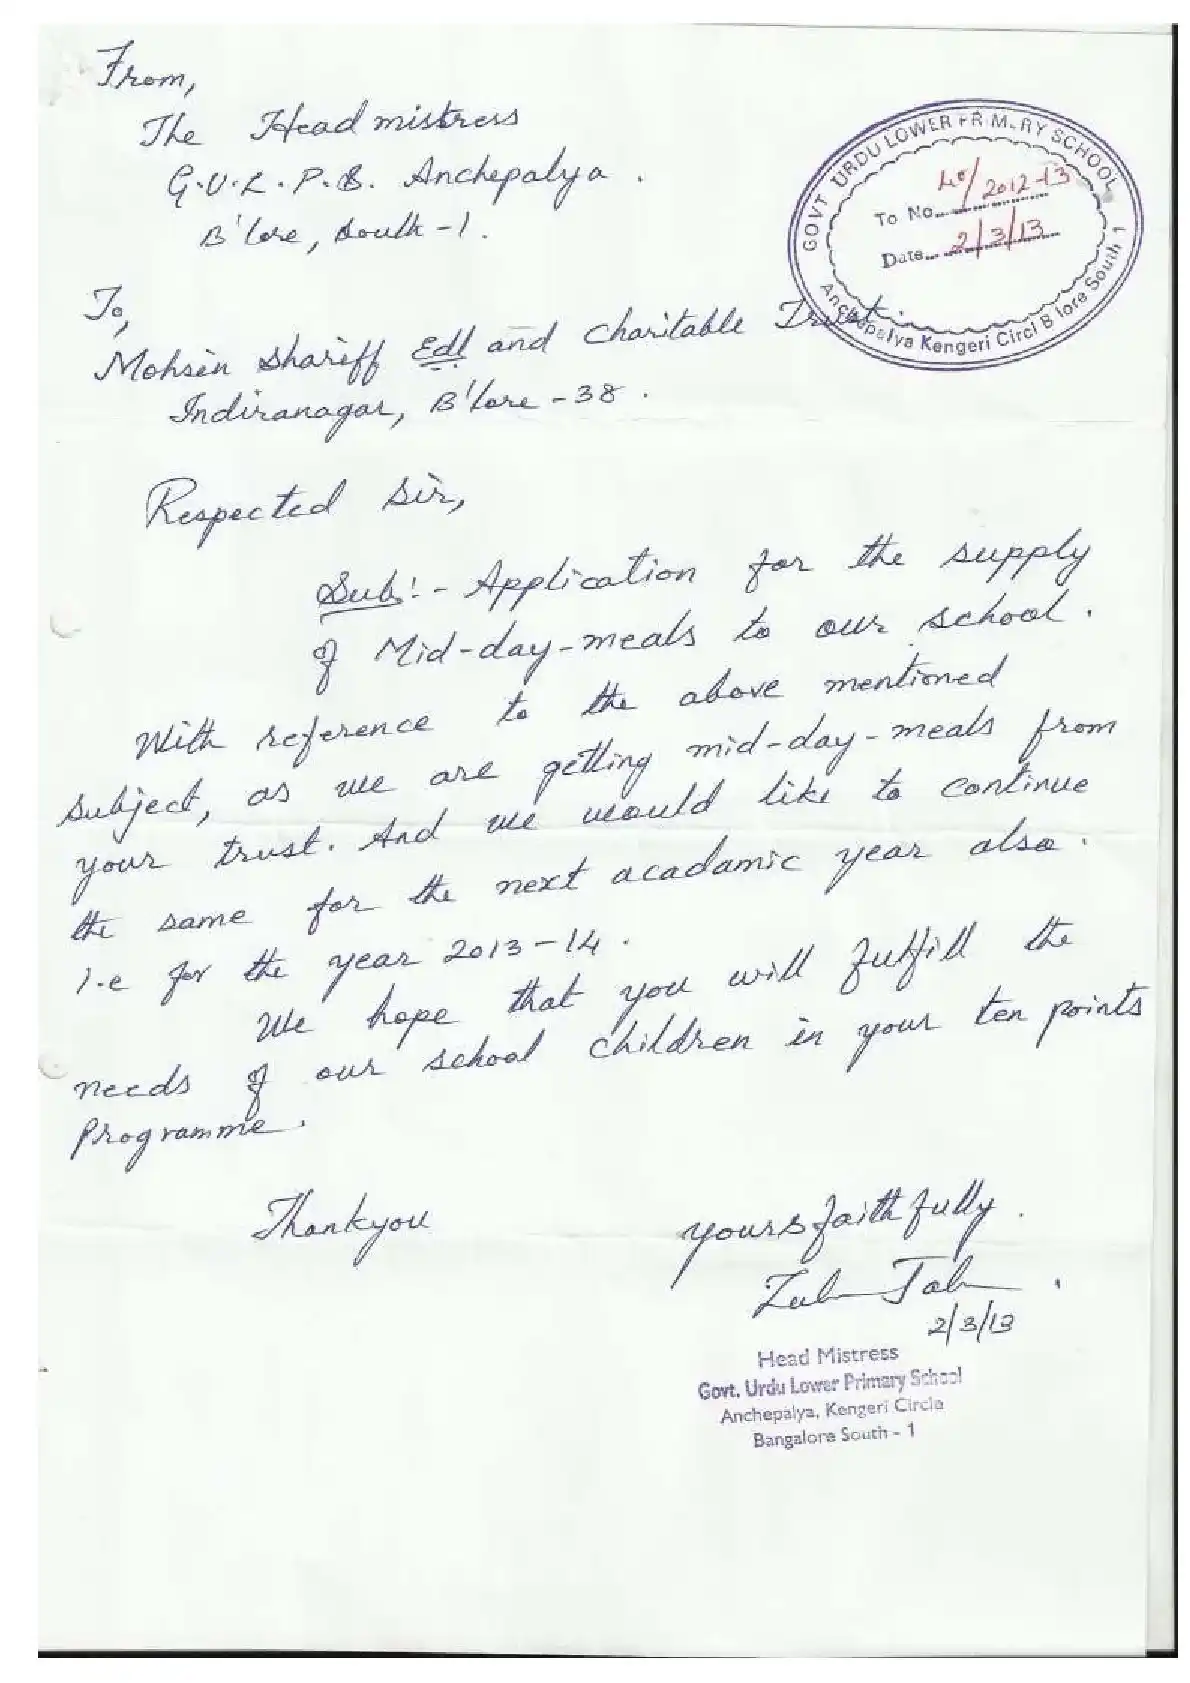 From,
The Headmistress
G.U.L.P.B. Anchepalya.
B'lore, South-1.
GOVT URDU LOWER PRIMARY SCHOOL
To No... 40/2012-13
Date... 2/3/13
Anchepalya Kengeri Circl B lore South 1
To,
Mohsin Shariff Edl and Charitable Trust.
Indiranagar, B'lore-38.
Respected Sir,
Sub:- Application for the supply
of Mid-day-meals to our school.
With reference to the above mentioned
subject, as we are getting mid-day-meals from
your trust. And we would like to continue
the same for the next acadamic year also.
I.e for the year 2013-14.
We hope that you will fulfill the
needs of our school children in your ten points
Programme.
Thankyou
yours faithfully.
2/3/13
Head Mistress
Govt. Urdu Lower Primary School
Anchepalya, Kengeri Circle
Bangalore South - 1